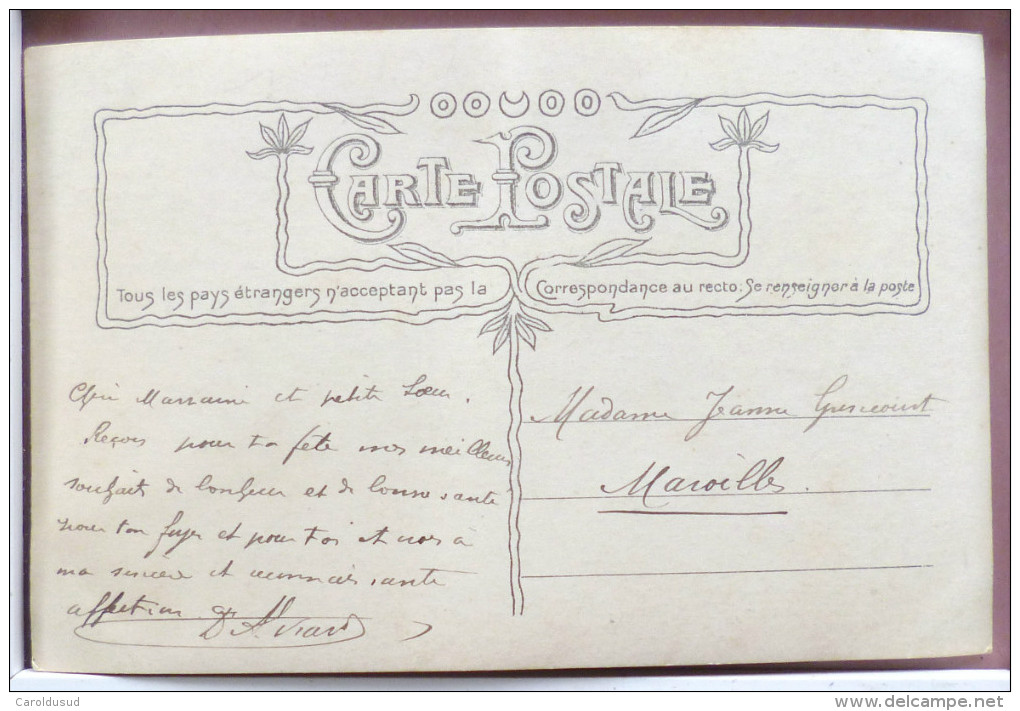 CARTE POSTALE
Tous les pays étrangers n'acceptant pas la Correspondance au recto. Se renseigner à la poste
Chère Marraine et petite Soeur.
Reçois pour ta fête nos meilleurs
souhaits de bonheur et de bonne santé
pour ton foyer et pour toi et crois à
ma sincère et reconnaissante
affection
Madame Jeanne
Maroilles.
Caroldusud
www.delcampe.net